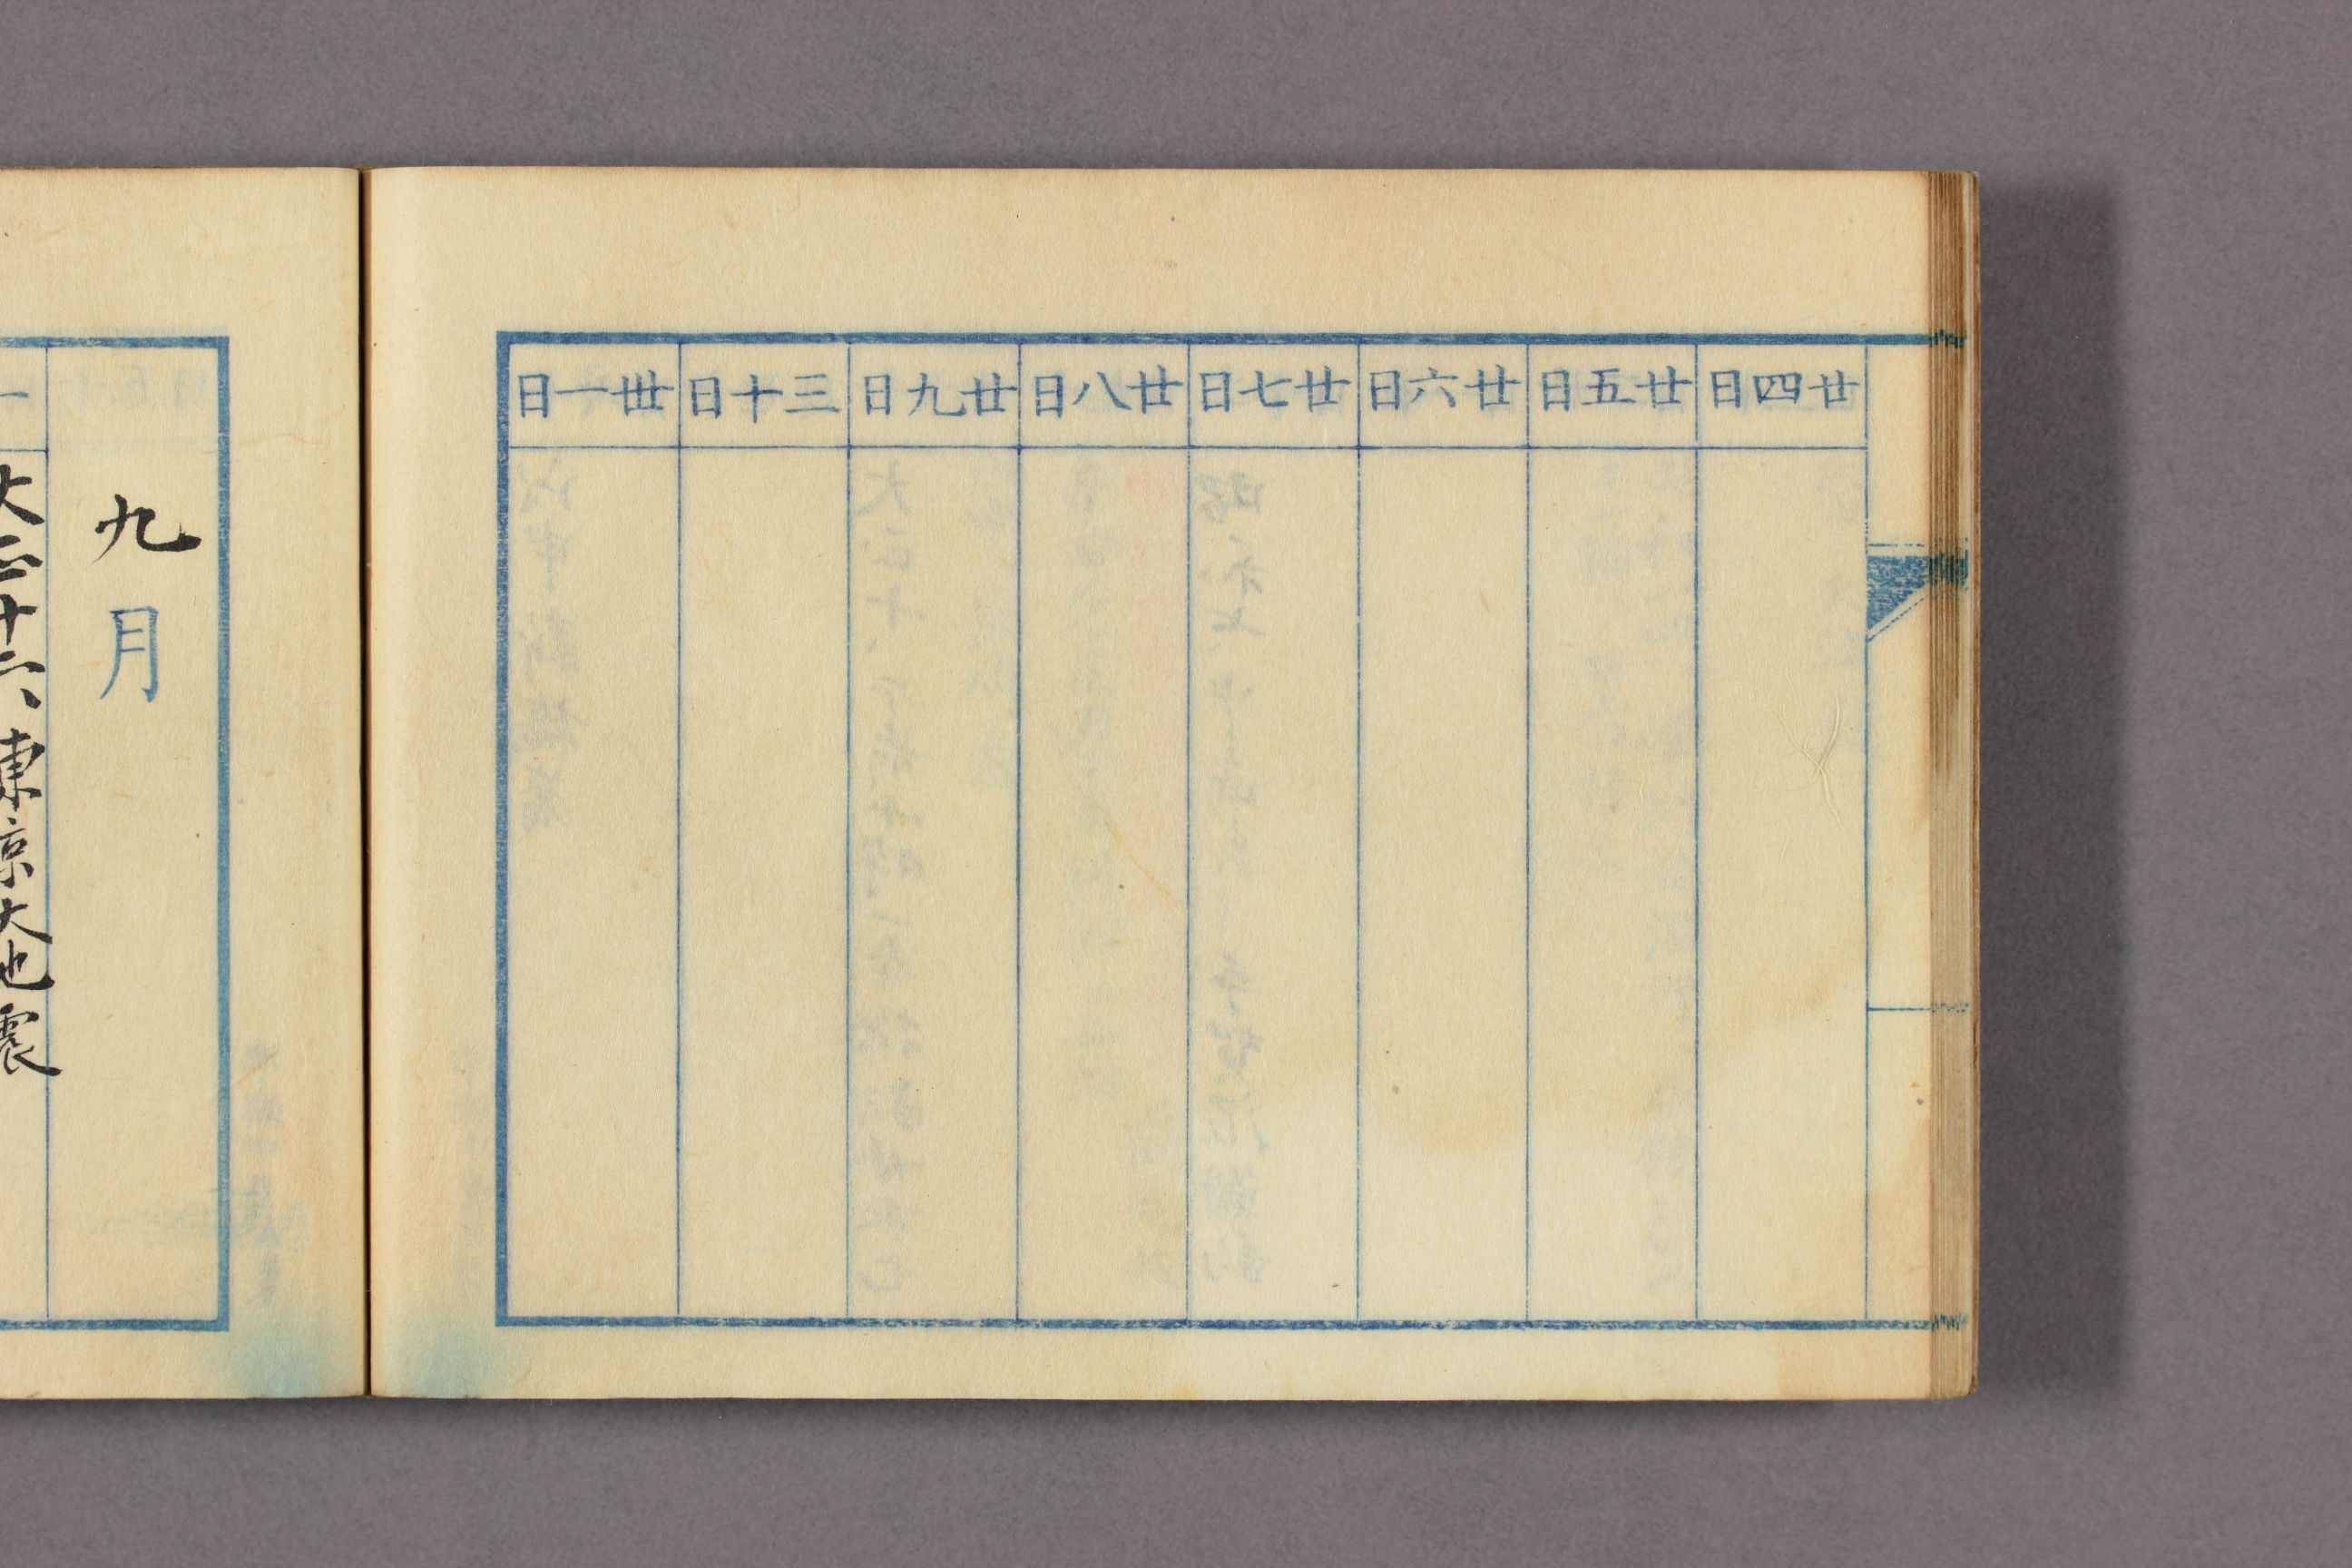 廿四日
廿五日
廿六日
廿七日
廿八日
廿九日
三十日
丗一日
九月
一
大正十二、東京大地震